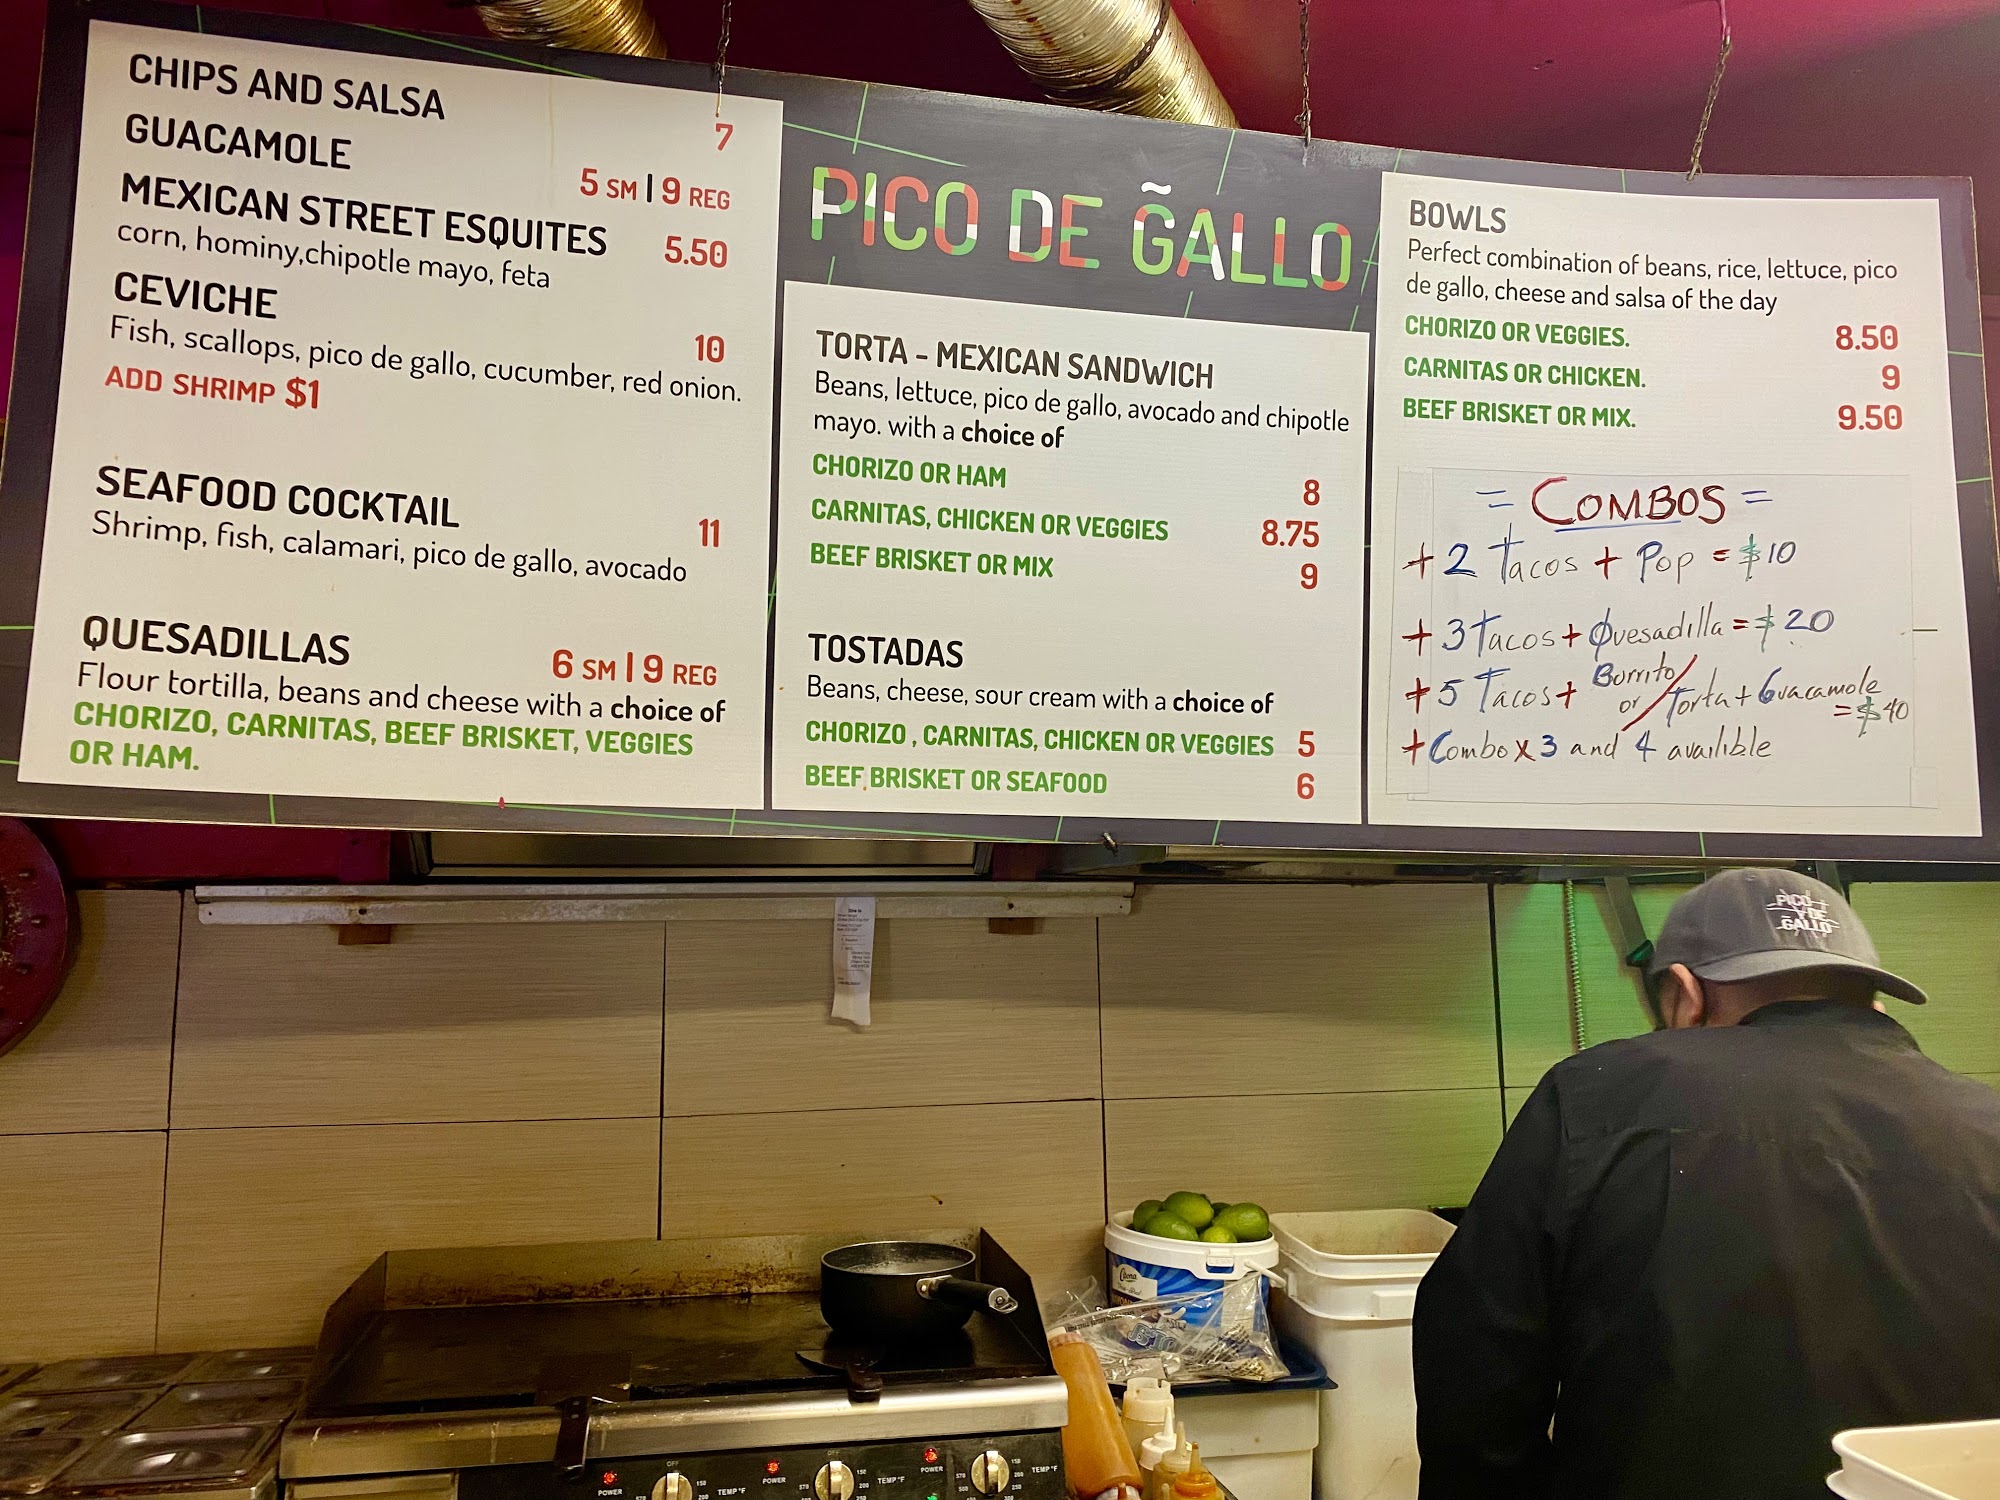 CHIPS AND SALSA 7
GUACAMOLE 5 SM | 9 REG
MEXICAN STREET ESQUITES 5.50
corn, hominy,chipotle mayo, feta
CEVICHE 10
Fish, scallops, pico de gallo, cucumber, red onion.
ADD SHRIMP $1
SEAFOOD COCKTAIL 11
Shrimp, fish, calamari, pico de gallo, avocado
QUESADILLAS 6 SM | 9 REG
Flour tortilla, beans and cheese with a choice of
CHORIZO, CARNITAS, BEEF BRISKET, VEGGIES
OR HAM.
PICO DE G̃ALLO
TORTA - MEXICAN SANDWICH
Beans, lettuce, pico de gallo, avocado and chipotle
mayo. with a choice of
CHORIZO OR HAM 8
CARNITAS, CHICKEN OR VEGGIES 8.75
BEEF BRISKET OR MIX 9
TOSTADAS
Beans, cheese, sour cream with a choice of
CHORIZO , CARNITAS, CHICKEN OR VEGGIES 5
BEEF BRISKET OR SEAFOOD 6
BOWLS
Perfect combination of beans, rice, lettuce, pico
de gallo, cheese and salsa of the day
CHORIZO OR VEGGIES. 8.50
CARNITAS OR CHICKEN. 9
BEEF BRISKET OR MIX. 9.50
= COMBOS =
+ 2 Tacos + Pop = $10
+ 3 Tacos + Quesadilla = $20
+ 5 Tacos + Burrito or / Torta + Guacamole
= $40
+ Combo x 3 and 4 availible
PICO
DE
G̃ALLO
POWER
OFF
TEMP °F
POWER
OFF
TEMP °F
POWER
TEMP °F